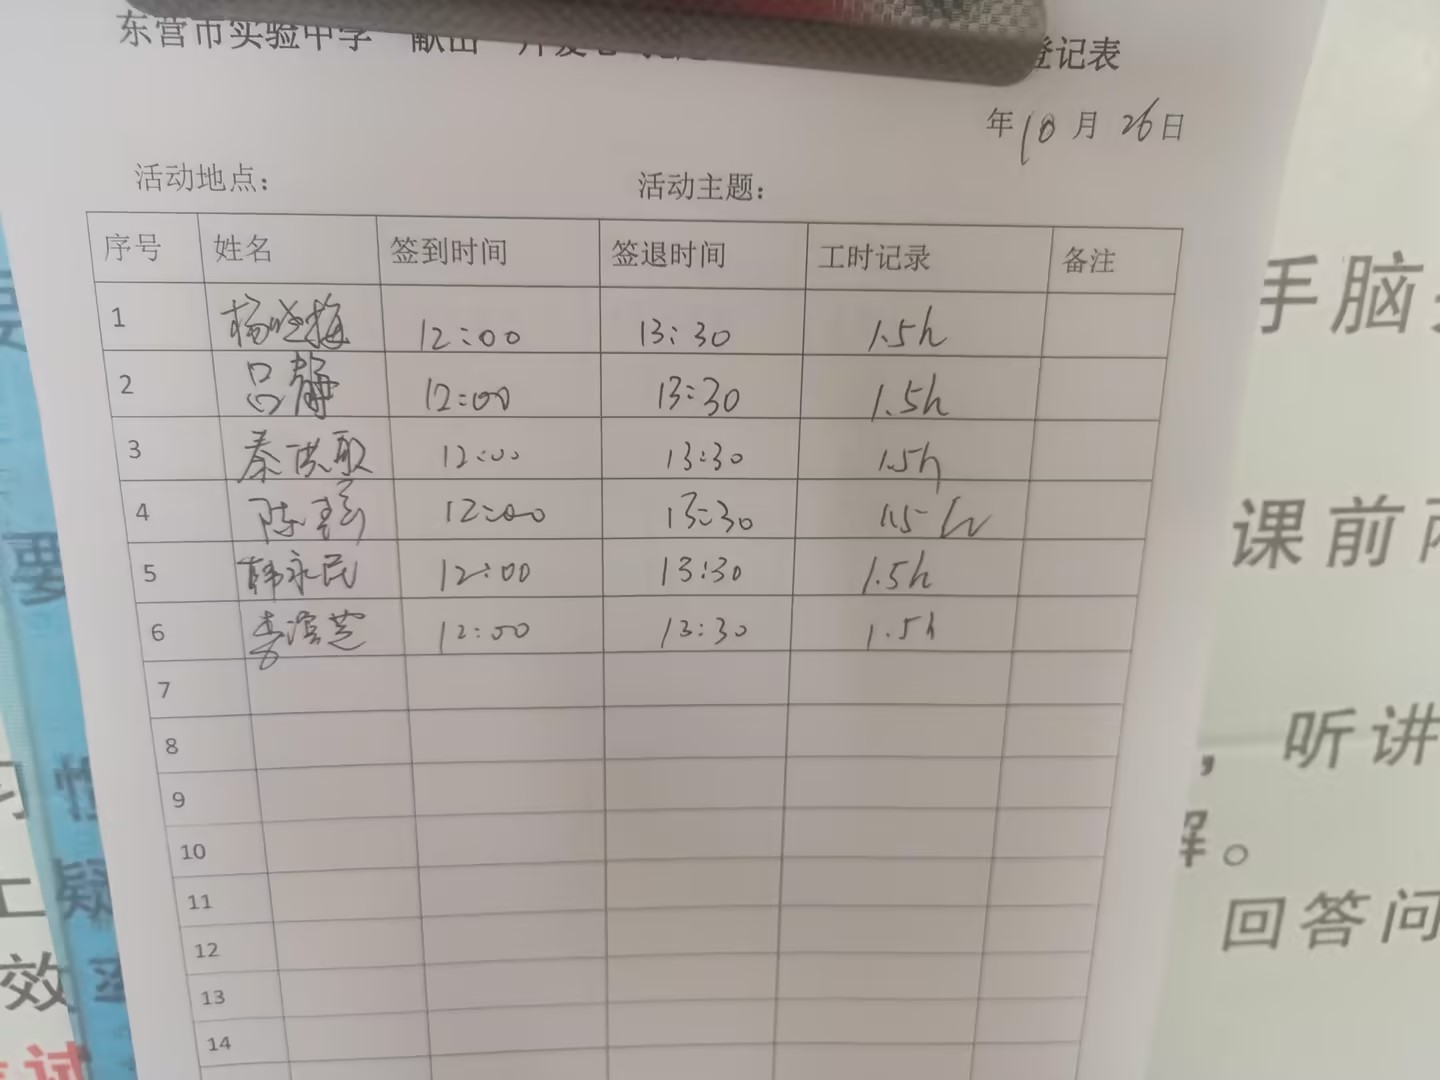 东营市实验中学 献出一片爱心 登记表
年10月26日
活动地点： 活动主题：
序号 姓名 签到时间 签退时间 工时记录 备注
1 杨晓梅 12:00 13:30 1.5h
2 吕静 12:00 13:30 1.5h
3 秦洪取 12:00 13:30 1.5h
4 陈 12:00 13:30 1.5h
5 韩永民 12:00 13:30 1.5h
6 李滨芝 12:00 13:30 1.5h
7
8
9
10
11
12
13
14
手脑
要
课前
性
习
，听讲
解。
工
疑
回答问
效率
试